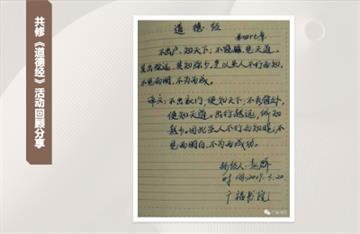 共修《道德经》活动回顾分享
道德经
第四十七章
不出户，知天下；不窥牖，见天道。
其出弥远，其知弥少。是以圣人不行而知，
不见而明，不为而成。
译文：不出家门，便知天下；不看窗外，
便知天道。出行越远，所知
越少。因此圣人不行而知晓，不
见而明白，不为而成功。
抄经人：
时间：2019.5.20
广裕书院